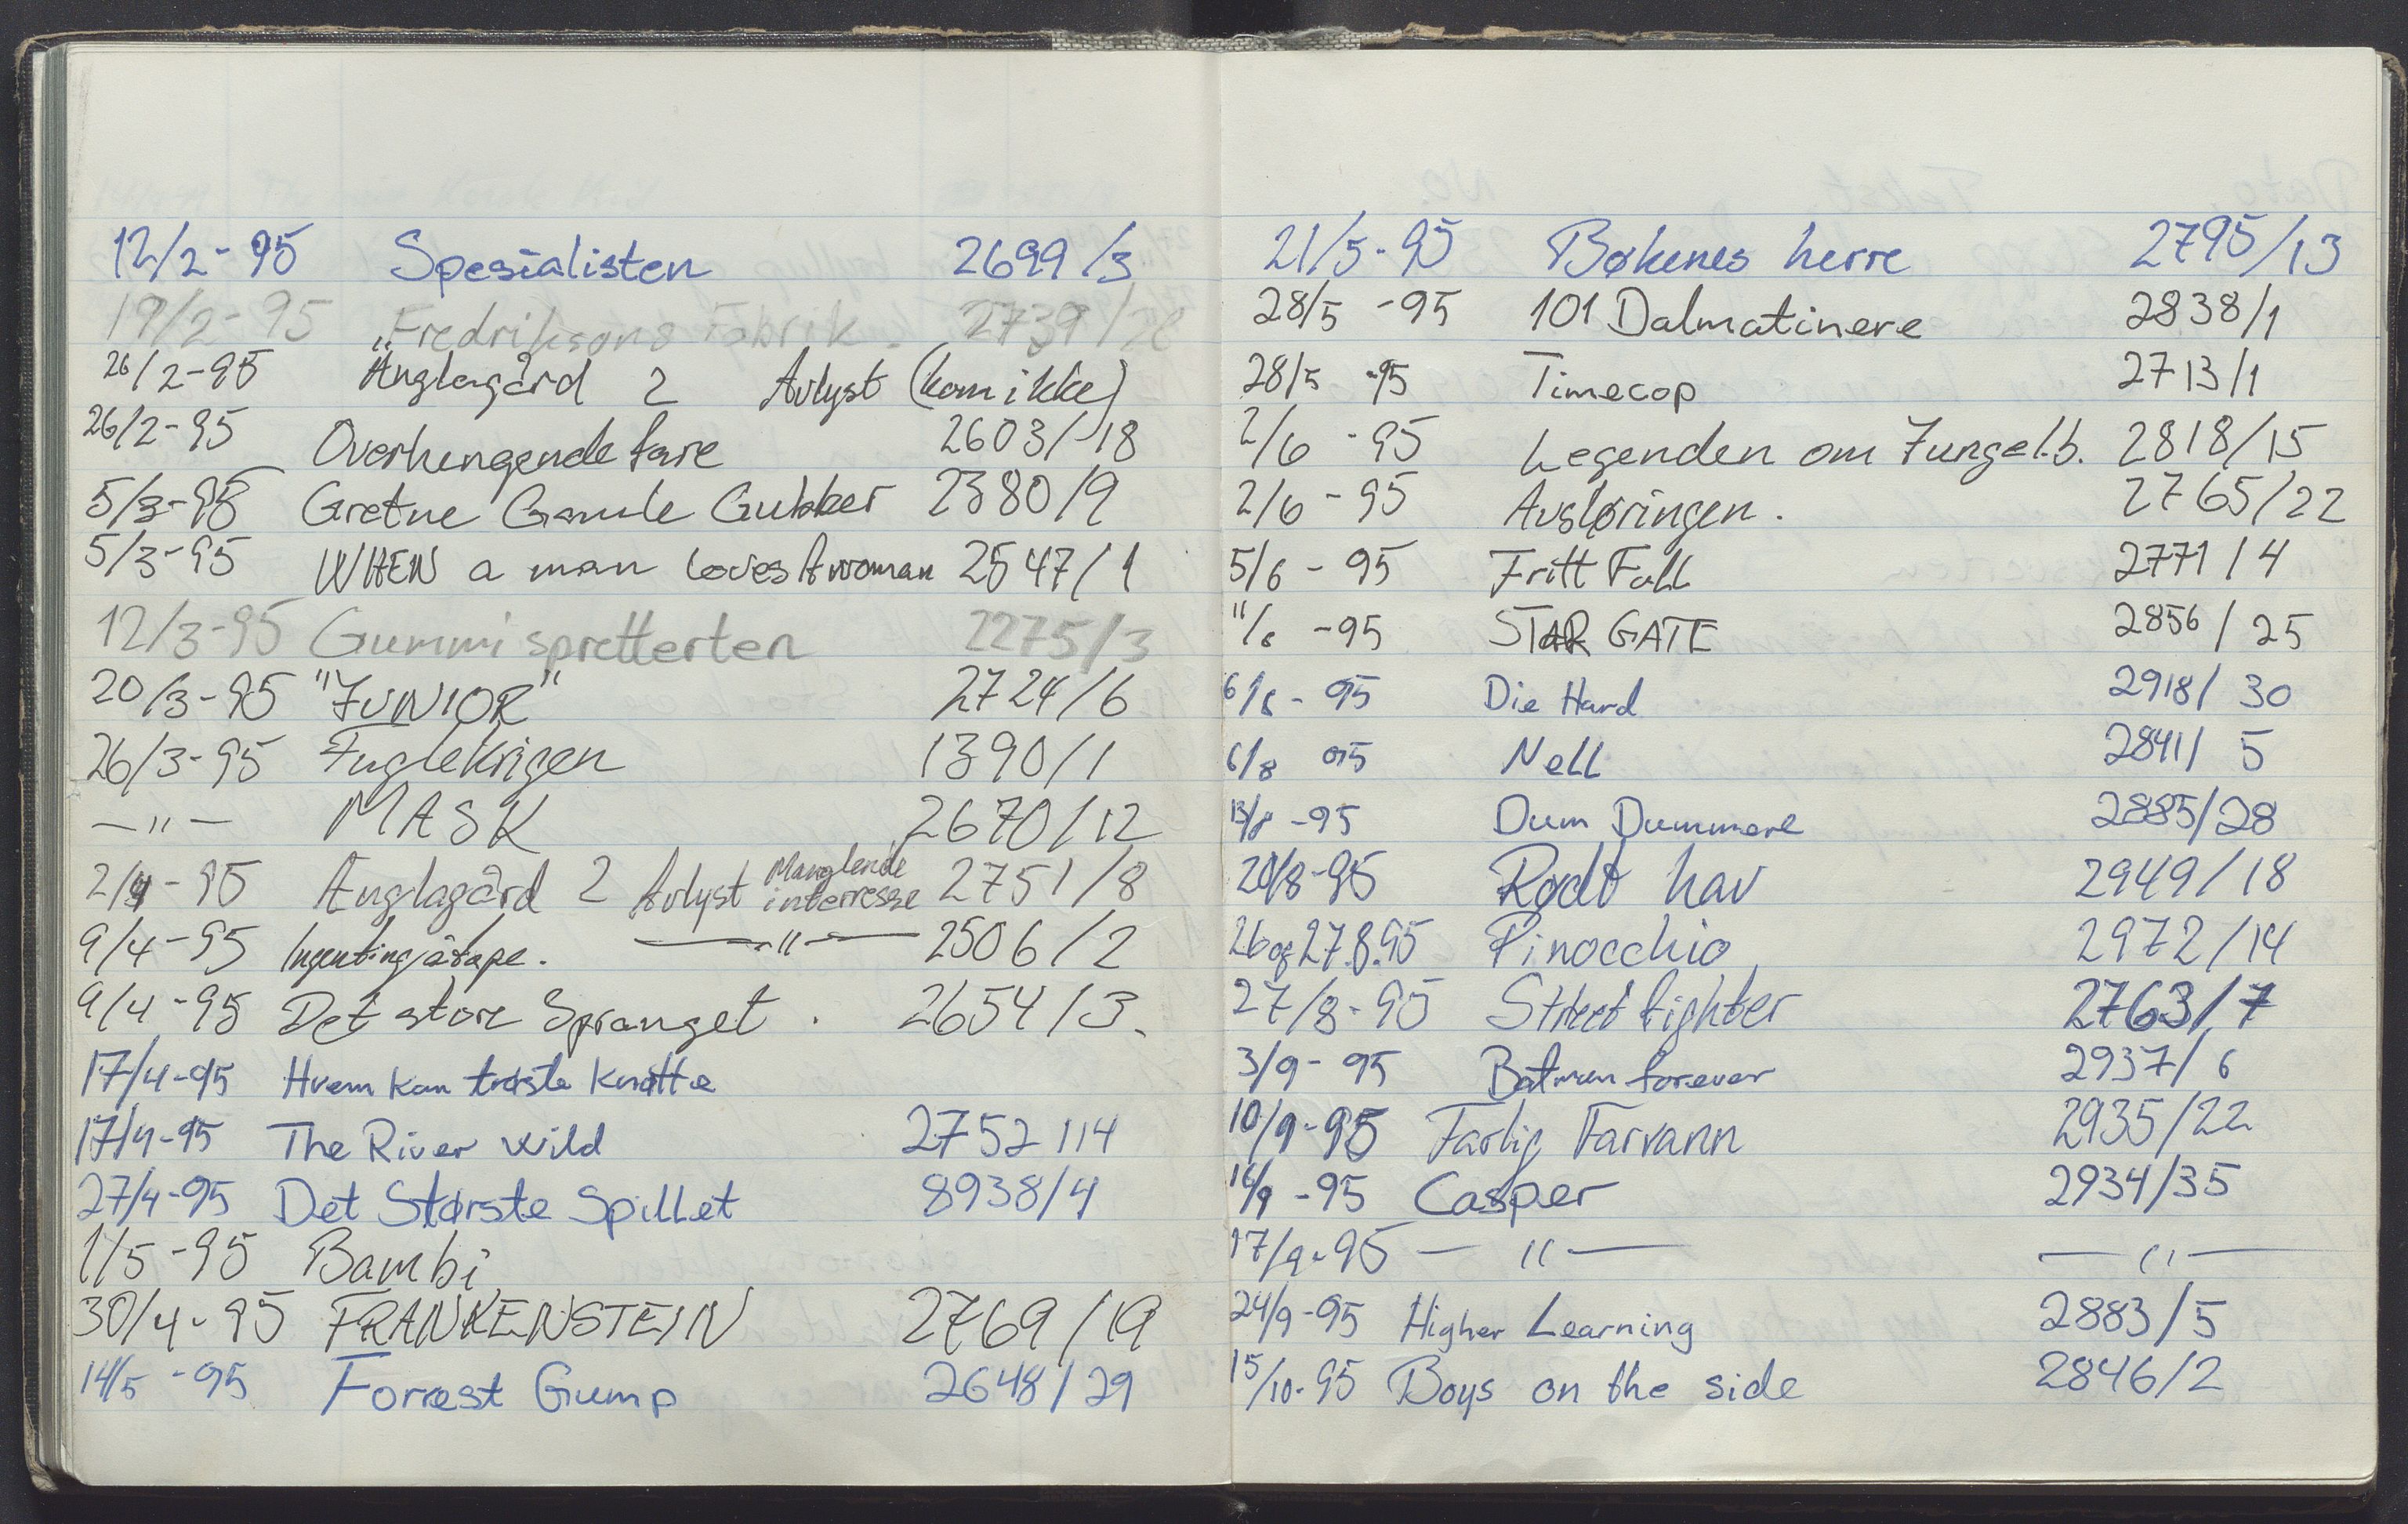 12/2-95 Spesialisten 2699/3
19/2-95 Fredriksons Fabrik. 2739/
26/2-95 Änglagård 2 Avlyst (kom ikke)
26/2-95 Overhengende fare 2603/18
5/3-95 Gretne Gamle Gubber 2380/9
5/3-95 WHEN a man loves A woman 2547/1
12/3-95 Gummi spretterten 2275/3
20/3-95 "JUNIOR" 2724/6
26/3-95 Fuglekrigen 1390/1
—"— MASK 2670/12
2/4-95 Änglagård 2 Avlyst Manglende interresse 2751/8
9/4-95 Ingenting å tape. —"— 2506/2
9/4-95 Det store Spranget. 2654/3.
17/4-95 Hvem kan trøste Knøtte
17/4-95 The River Wild 2752/14
27/4-95 Det Største Spillet 8938/4
1/5-95 Bambi
30/4-95 FRANKENSTEIN 2769/19
14/5-95 Forrest Gump 2648/29
21/5-95 Bøkenes herre 2795/13
28/5-95 101 Dalmatinere 2838/1
28/5-95 Timecop 2713/1
2/6-95 Legenden om Jungel.b. 2818/15
2/6-95 Avsløringen. 2765/22
5/6-95 Fritt Fall 2771/4
11/6-95 STAR GATE 2856/25
6/8-95 Die Hard 2918/30
6/8 95 Nell 2841/5
13/8-95 Dum Dummere 2885/28
20/8-95 Rødt hav 2949/18
26 og 27.8.95 Pinocchio 2972/14
27/8-95 Street fighter 2763/7
3/9-95 Batman forever 2937/6
10/9-95 Farlig Farvann 2935/22
16/9-95 Casper 2934/35
17/9-95 —"— —"—
24/9-95 Higher Learning 2883/5
15/10-95 Boys on the side 2846/2